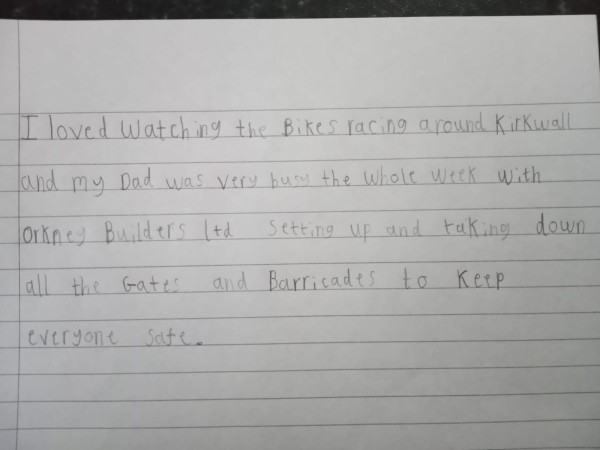 I loved Watching the Bikes racing around Kirkwall
and my Dad was very busy the whole week with
Orkney Builders ltd Setting up and taking down
all the Gates and Barricades to Keep
everyone safe.